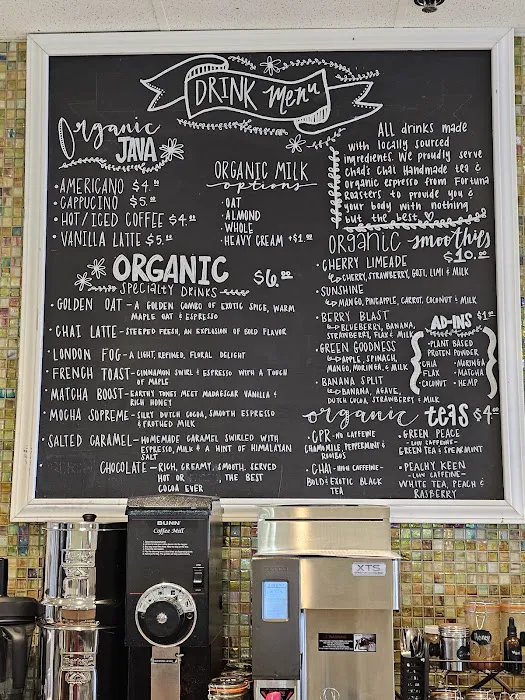 DRINK Menu
Organic
JAVA
• AMERICANO $4.00
• CAPPUCINO $5.00
• HOT/ICED COFFEE $4.00
• VANILLA LATTE $5.00
ORGANIC MILK
options
• OAT
• ALMOND
• WHOLE
• HEAVY CREAM +$1.00
ALL drinks made
with locally sourced
ingredients. We proudly serve
Chad's Chai Handmade tea &
organic espresso from Fortuna
Roasters to provide you &
your body with nothing
but the best
ORGANIC
Specialty DRINKS
$6.00
• GOLDEN OAT - A GOLDEN COMBO OF EXOTIC SPICE, WARM
MAPLE OAT & ESPRESSO
• CHAI LATTE - STEEPED FRESH, AN EXPLOSION OF BOLD FLAVOR
• LONDON FOG - A LIGHT, REFINED, FLORAL DELIGHT
• FRENCH TOAST - CINNAMON SWIRL & ESPRESSO WITH A TOUCH
OF MAPLE
• MATCHA BOOST - EARTHY TONES MEET MADAGSCAR VANILLA &
RICH HONEY
• MOCHA SUPREME - SILKY DUTCH COCOA, SMOOTH ESPRESSO
& FROTHED MILK
• SALTED CARAMEL - HOMEMADE CARAMEL SWIRLED WITH
ESPRESSO, MILK & A HINT OF HIMALAYAN
SALT
• CHOCOLATE - RICH, CREAMY, SMOOTH. SERVED
HOT OR THE BEST
COCOA EVER
ORGANIC smoothies
$10.00
• CHERRY LIMEADE
CHERRY, STRAWBERRY, GOJI, LIME & MILK
• SUNSHINE
MANGO, PINEAPPLE, CARROT, COCONUT & MILK
• BERRY BLAST
BLUEBERRY, BANANA,
STRAWBERRY, FLAX & MILK
• GREEN GOODNESS
APPLE, SPINACH,
MANGO, MORINGA, & MILK
• BANANA SPLIT
BANANA, AGAVE,
DUTCH COCOA, STRAWBERRY & MILK
AD-INS $1.00
• PLANT BASED
PROTEIN POWDER
• CHIA • MARINGA
• FLAX • MATCHA
• COCONUT • HEMP
organic teas $4.00
• CPR - NO CAFFEINE
CHAMOMILE, PEPPERMINT &
ROOIBOS
• CHAI - HIGH CAFFEINE -
BOLD & EXOTIC BLACK
TEA
• GREEN PEACE
- LOW CAFFEINE -
GREEN TEA & SPEARMINT
• PEACHY KEEN
- LOW CAFFEINE -
WHITE TEA, PEACH &
RASBERRY
BUNN
Coffee Mill
XTS
WARNING
Honey